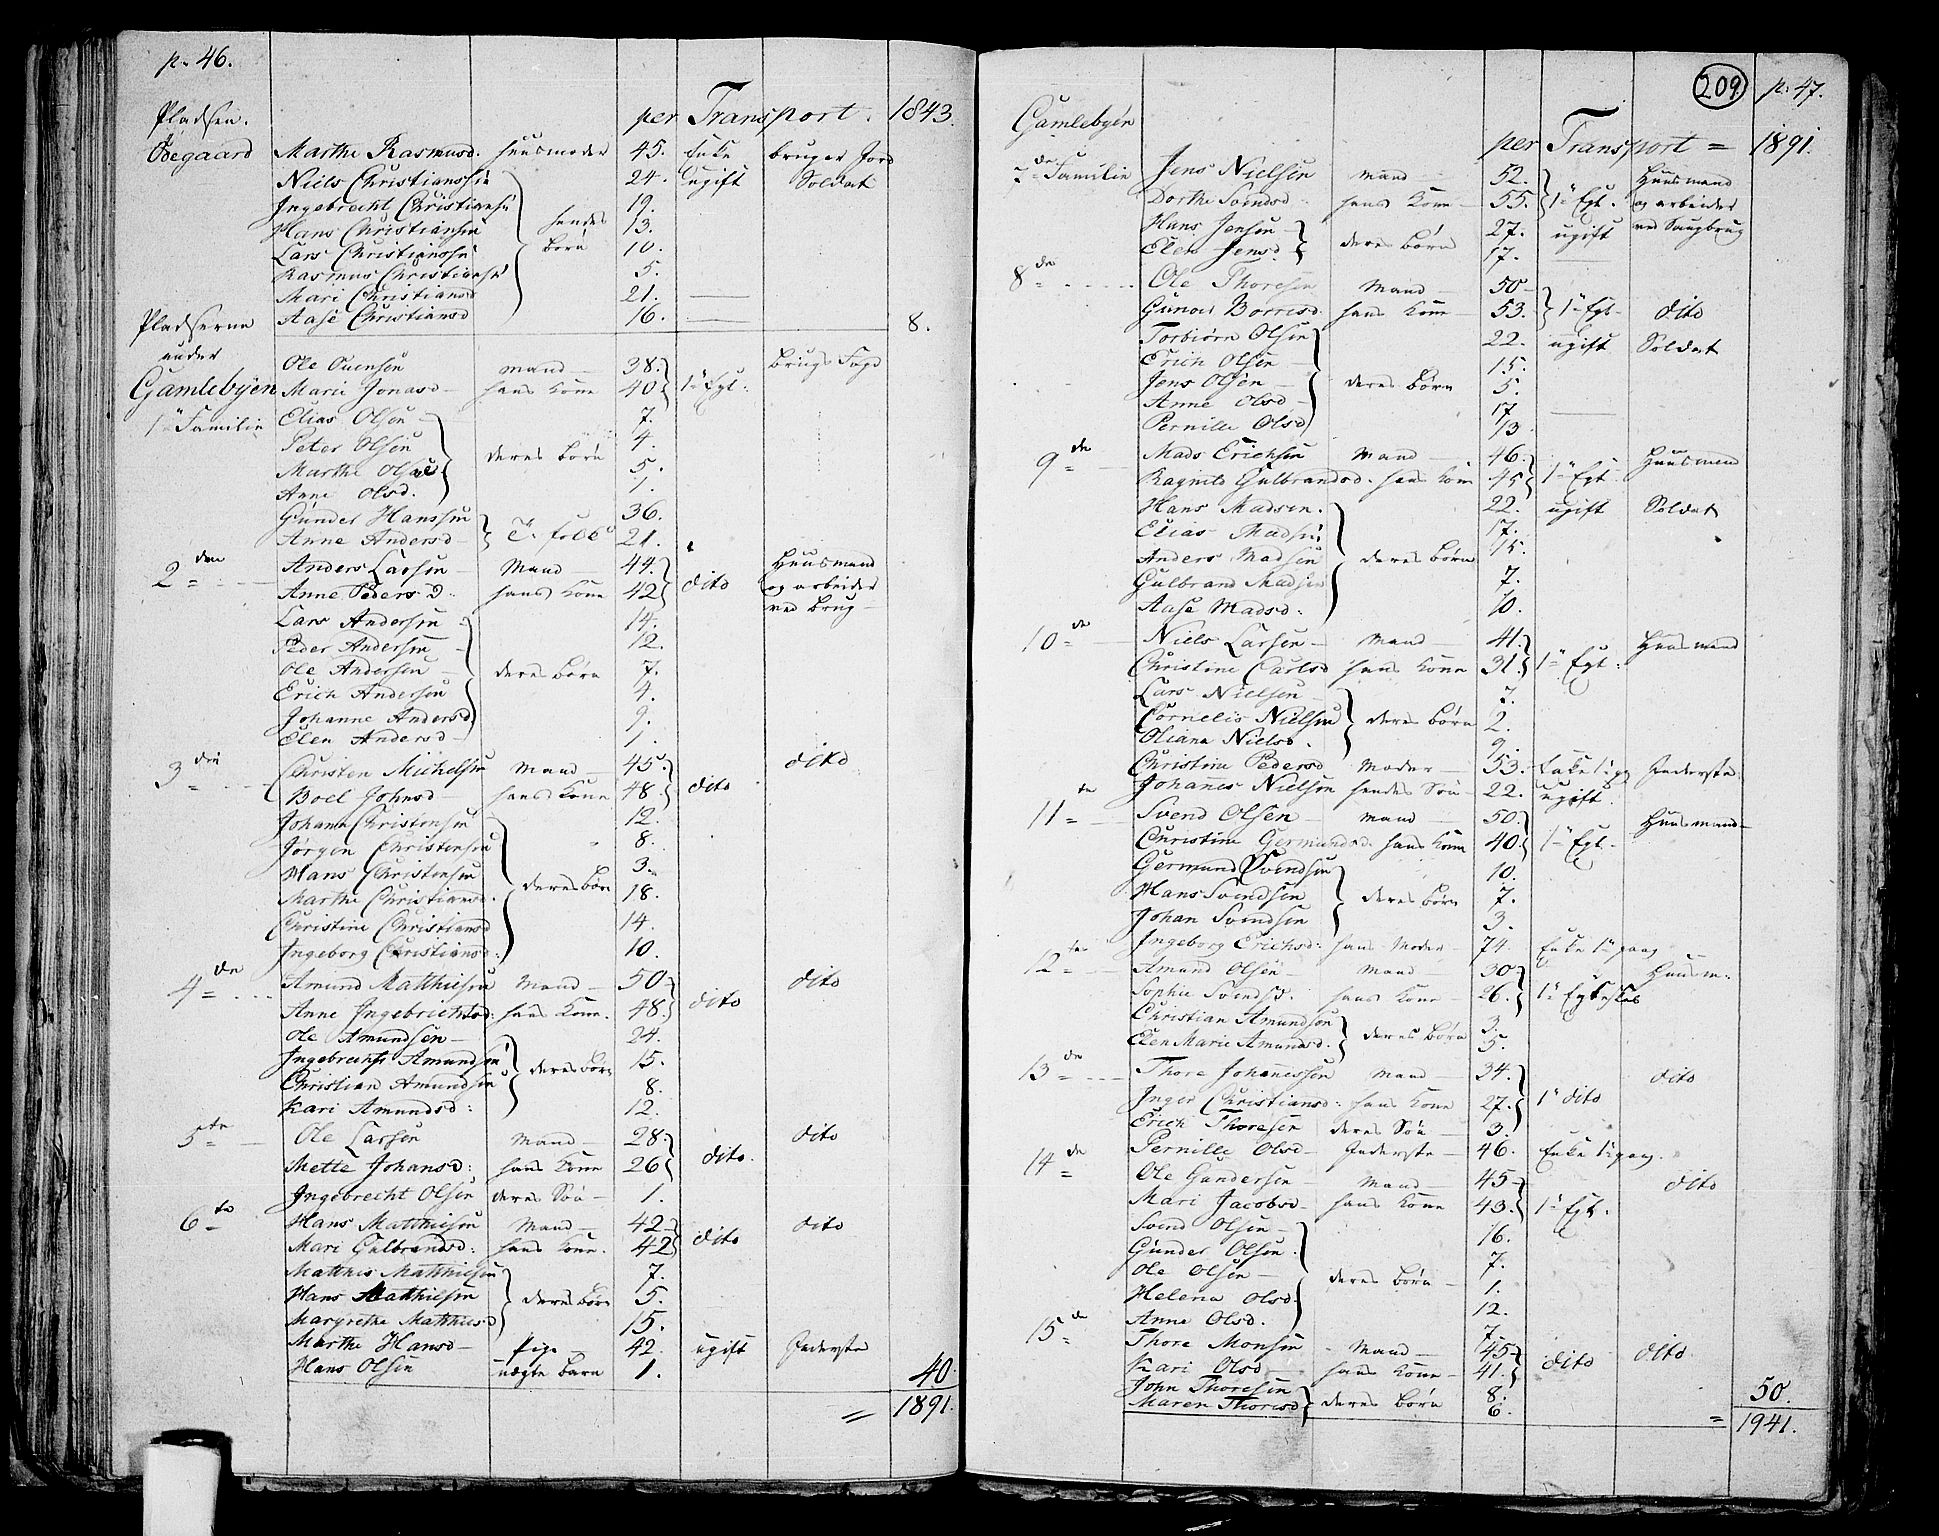 p. 46.
Pladsen. per Transport. 1843.
Ødegaard Marthe Rasmusd. huusmoder 45. Enke bruger Jord
Niels Christianssen 24. ugift Soldat
Ingebrecht Christianse 19.
Hans Christiansen hendes 13.
Lars Christiansse børn 10.
Rasmus Christianse 5.
Mari Christiansd 21. —
Pladserne Aase Christiansd 16. — 8.
under
Ole Ouensen mand — 38. Brugs Fogd
Gamlebyen Marie Jonasd — hans Kone 40 1te Egt.
1te Familie Elias Olsen — 7.
Peter Olsen deres børn 4.
Marthe Olsd 5.
Anne Olsd. 1.
Gunder Hanssen 36.
Anne Andersd — 21.
2den Anders Larsen — Mand — 44. Huusmand
Anne Peders D. hans Kone 42 dito og arbeider
Lars Andersen 14. ved Brug —
Peder Andersen 12.
Ole Andersen — deres børn 7.
Erich Andersen 4.
Johanne Andersd 9.
Elen Andersd — 1.
3die Christen Michelsen mand — 45. dito
Boel Johnsd — hans Kone 48. dito
Johan Christensen 12.
Jørgen Christensen 8.
Hans Christensen 3.
Marthe Christiansd. deres børn 18.
Christine Christiansd 14.
Ingeborg Christiansd. 10.
4de Amund Matthiesen Mand — 50 dito
Anne Ingebrichtsd: hans Kone. 48. dito
Ole Amundsen — 24.
Ingebrecht Amundsen deres børn 15.
Christian Amundsen 8.
Kari Amundsd: 12.
5te Ole Larsen Mand — 28. dito
Mette Johansd: hans Kone 26 dito.
Ingebrecht Olsen deres Søn — 1.
6te Hans Matthiesen Mand — 42 dito
Mari Gulbrandsd: hans Kone. 42 dito
Matthis Matthiesen 7.
Hans Matthiesen deres børn 5.
Margrethe Matthiesd 15.
Marthe Hansd — Pige — 42. ugift Inderste
Hans Olsen uægte barn 1. 40.
= 1891.
209 p. 47.
Gamlebyen per Transport = 1891.
7de Familie Jens Nielsen mand — 52. Huusmand
Dorthe Svendsd. hans Kone — 55. 1te Egt. og arbeider
Hans Jensen deres børn 27. ugift ved Saugbrug
Elen Jensd. 17. —
8de Ole Thoresen Mand — 50 —
Gunor Borresd hans Kone — 53. 1te Egt — dito
Torbiørn Olsen 22. ugift Soldat
Erich Olsen — 15.
Jens Olsen — deres børn 5.
Anne Olsd — 17 —
Pernille Olsd 13.
9de Mads Erichsen Mand — 46. Huusmand
Ragnild Gulbrandsd. hans Kone 45 1te Egt.
Hans Madsen. 22. ugift Soldat
Elias Madsen 17.
Anders Madsen deres børn 15.
Gulbrand Madsen 7.
Aase Madsd. 10.
10de Niels Larsen — Mand — 41. Huusmand
Christine Carlsd hans Kone 31. 1te Egt.
Lars Nielsen — 7.
Cornelis Nielsen deres børn 2.
Oliana Nielsd. 9.
Christine Pedersd Moder — 53. Enke 1 gg Inderste.
Johannes Nielsen hendes Søn — 22. ugift.
11te Svend Olsen — Mand — 50. Huusmand —
Christine Germundsd. hans Kone 40. 1te Egt.
Germund Svendsen 10.
Hans Svendsen deres børn 7.
Johan Svendsen 3.
Ingeborg Erichsd: hans Moder — 74. Enke 1te gang
12te Amund Olsen — Mand — 30 Huusm:
Sophie Svendsd. hans Kone — 26. 1te Egteskab
Christian Amundsen deres børn 3.
Elen Marie Amundsd. 5.
13de Thore Johannessen mand — 34. dito
Inger Christiansd: hans Kone 27. 1te dito
Erich Thoresen deres Søn — 3.
14de Pernille Olsd — Inderste — 46. Enke 1te gang.
Ole Gundersen — Mand — 45 — dito
Mari Jacobsd — hans Kone 43. 1te Egt.
Svend Olsen — 16.
Gunder Olsen. 7.
Ole Olsen — deres børn — 1.
Helena Olsd. 12.
Anne Olsd. 7.
15de Thore Monsen Mand — 45 — dito
Kari Olsd — hans Kone — 41. dito
John Thoresen 8. 50.
Maren Thoresd deres børn 6. = 1941.